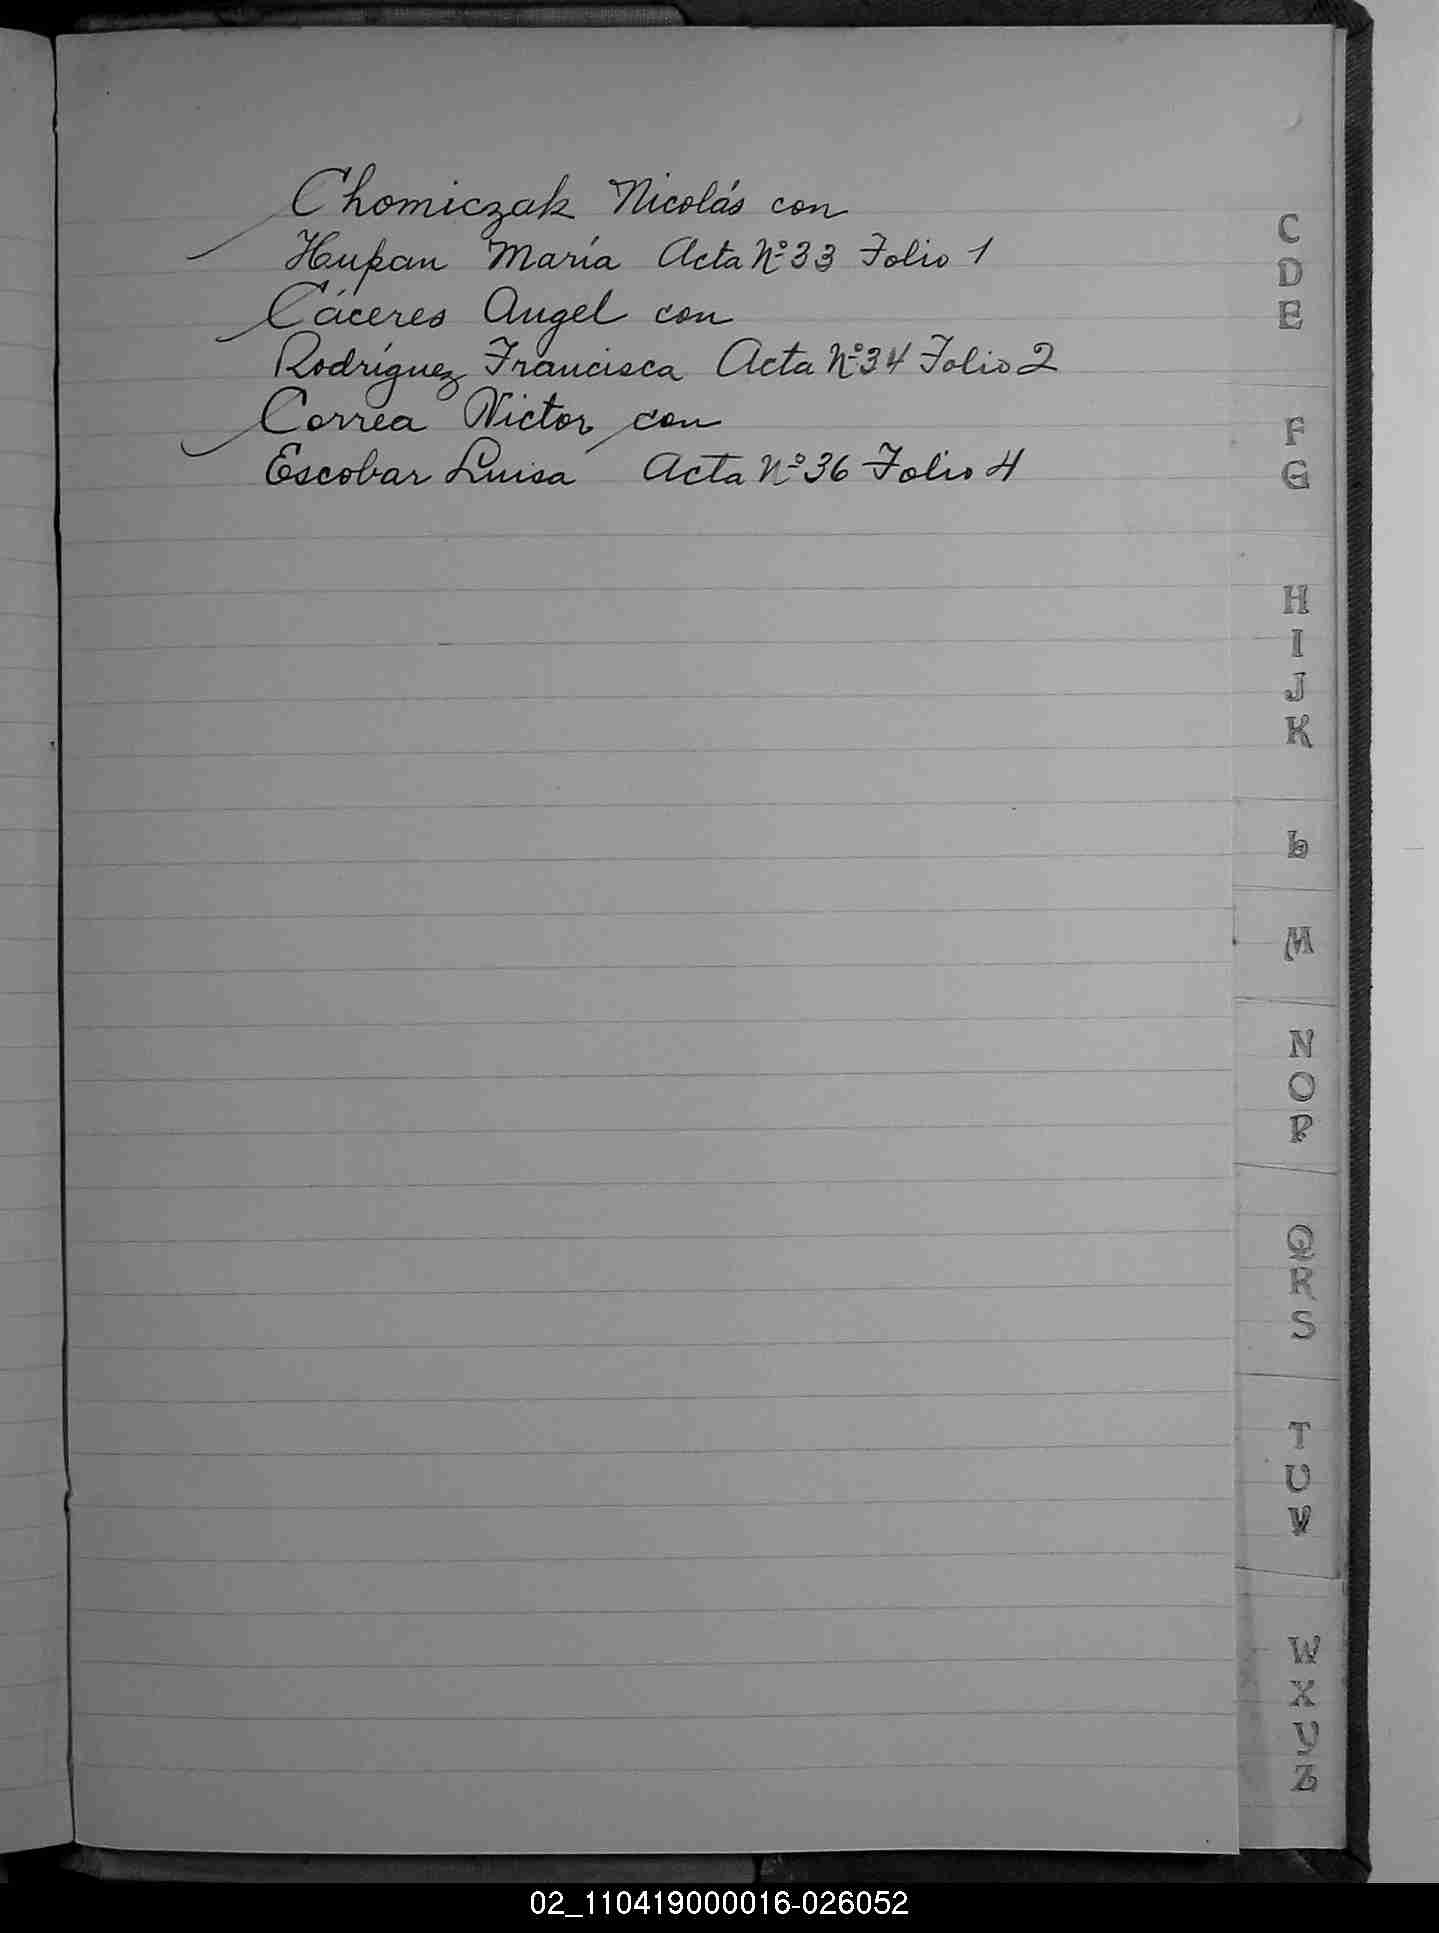 Chomiczak Nicolás con
Hupan María Acta Nº 33 Folio 1
Cáceres Angel con
Rodríguez Francisca Acta Nº 34 Folio 2
Correa Victor con
Escobar Luisa Acta Nº 36 Folio 4
C
D
E
F
G
H
I
J
K
L
M
N
O
P
Q
R
S
T
U
V
W
X
Y
Z
02_110419000016-026052